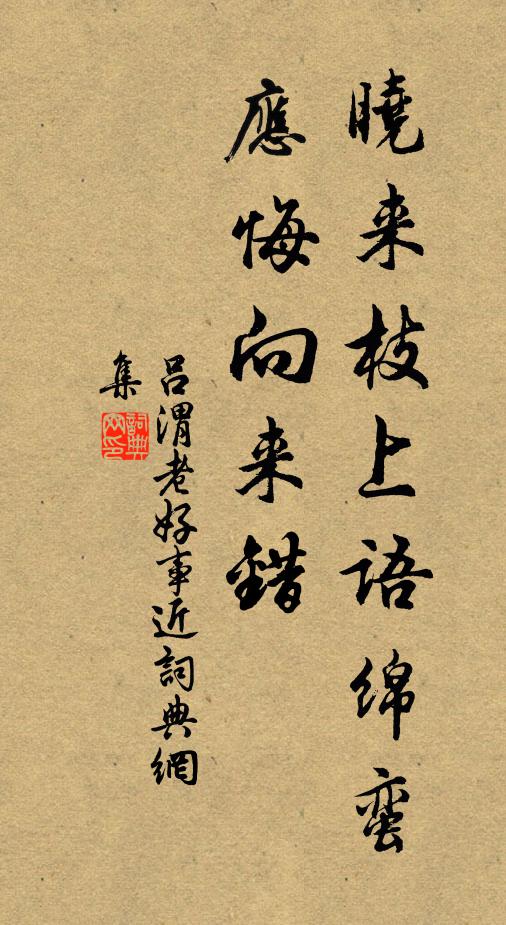 曉来枝上語绵蛮
應悔向来錯
呂渭老好事近詞典網
集
詞典
网印